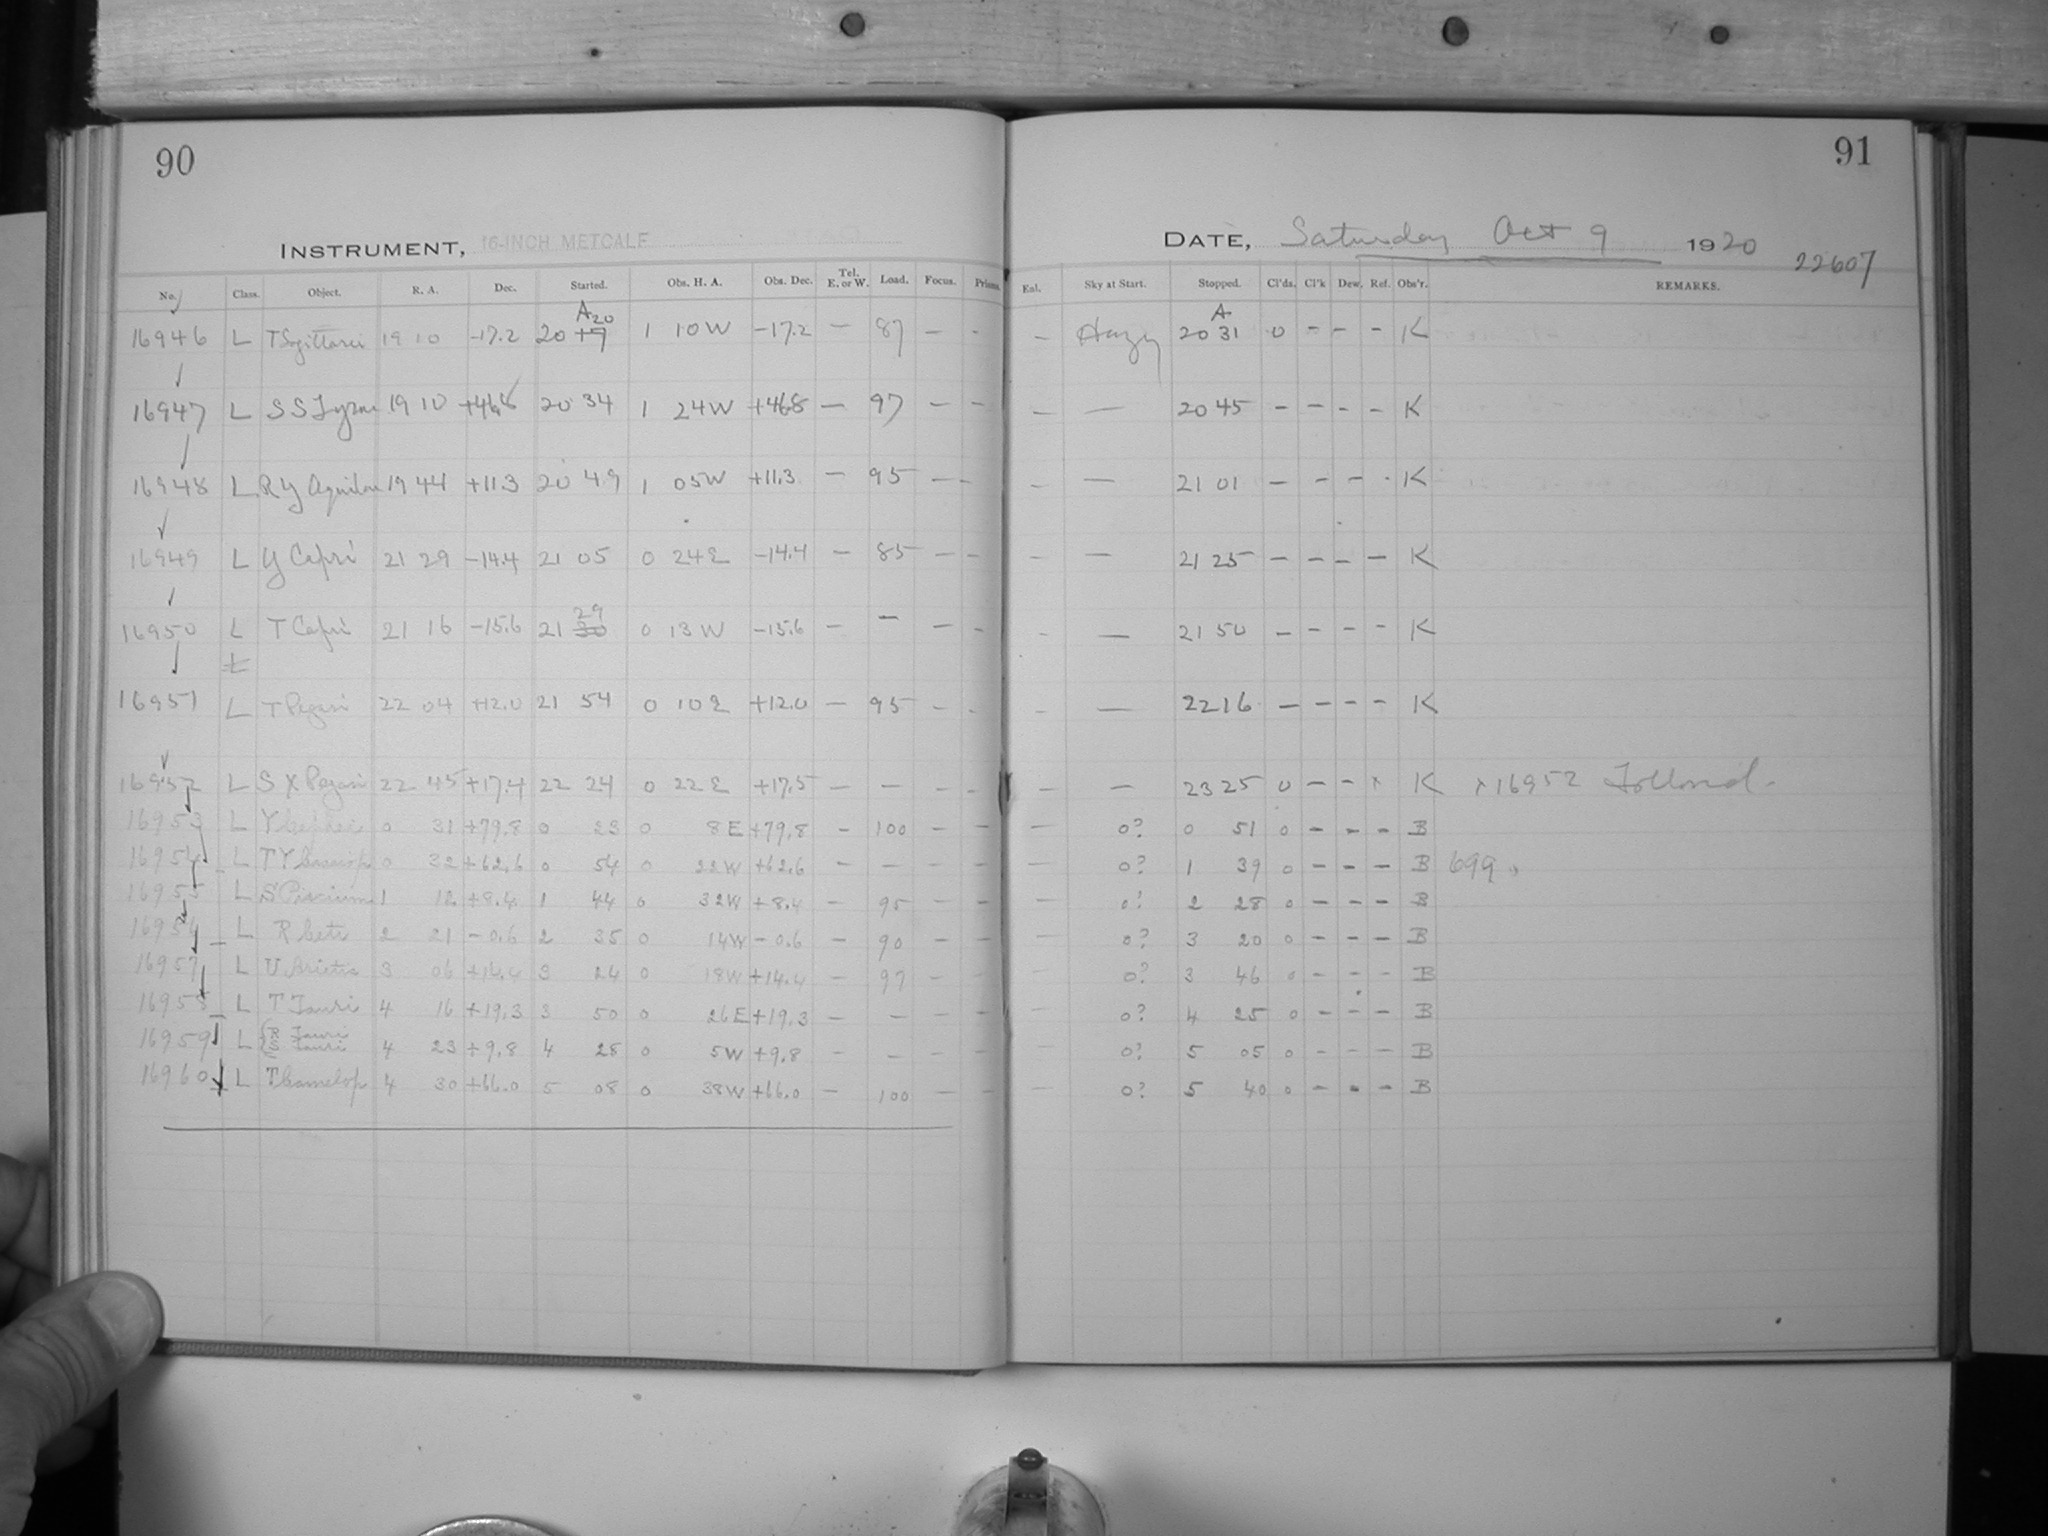 90
91
INSTRUMENT, 16-INCH METCALF
DATE, Saturday Oct 9 1920
22607
No. Class. Object. R. A. Dec. Started. Obs. H. A. Obs. Dec. Tel. E. or W. Load. Focus. Prisms. Eal. Sky at Start. Stopped. Cl'ds. Cl'k Dew. Ref. Obs'r. REMARKS.
A 20 A
16946 L T Sagittarii 19 10 -17.2 20 19 1 10W -17.2 – 87 – - – Hazy 20 31 0 - - - K
16947 L SS Lyrae 19 10 +46.8 20 34 1 24W +46.8 – 97 – – – — 20 45 – – – – K
16948 L RY Aquilae 19 44 +11.3 20 49 1 05W +11.3 – 95 – – – — 21 01 – – – - K
16949 L Y Capri 21 29 -14.4 21 05 0 24E -14.4 – 85 – – – — 21 25 – – – – K
29
16950 L T Capri 21 16 -15.6 21 30 0 13W -15.6 – – – – - — 21 50 – – – – K
L
16951 L T Pegasi 22 04 +12.0 21 54 0 10E +12.0 – 95 – - – — 22 16 – – – – K
16952 L SX Pegasi 22 45 +17.4 22 24 0 22E +17.5 – – – – – – 23 25 0 – – x K x 16952 Followed.
16953 L Y Cephei 0 31 +79.8 0 23 0 8E +79.8 – 100 – – – 0? 0 51 0 – – – B
16954 L TY Cassiop 0 32 +62.6 0 54 0 22W +62.6 – – – – – 0? 1 39 0 – – – B 699.
16955 L S Piscium 1 12 +8.4 1 44 0 32W +8.4 – 95 – – – 0? 2 28 0 – – – B
16956 L R Ceti 2 21 -0.6 2 35 0 14W -0.6 – 90 – – – 0? 3 20 0 – – – B
16957 L U Arietis 3 06 +14.4 3 24 0 18W +14.4 – 97 – – – 0? 3 46 0 – – – B
16958 L T Tauri 4 16 +19.3 3 50 0 26E +19.3 – – – – – 0? 4 25 0 – – – B
16959 L {R Tauri S Tauri 4 23 +9.8 4 28 0 5W +9.8 – – – – – 0? 5 05 0 – – – B
16960 L T Camelop 4 30 +66.0 5 08 0 38W +66.0 – 100 – – – 0? 5 40 0 – – – B